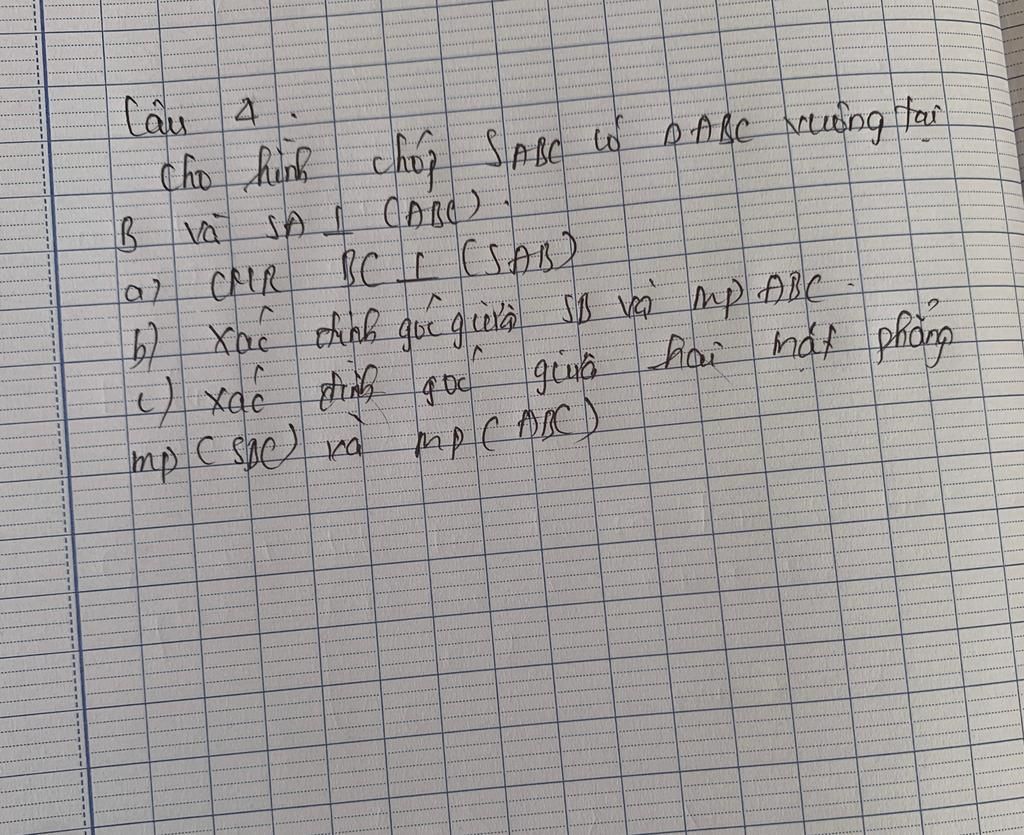 Câu 4.
Cho hình chóp SABC có ΔABC vuông tại
B và SA ⊥ (ABC).
a) CMR BC ⊥ (SAB)
b) Xác định góc giữa SB và mp ABC.
c) xác định góc giữa hai mặt phẳng
mp (SBC) và mp (ABC)